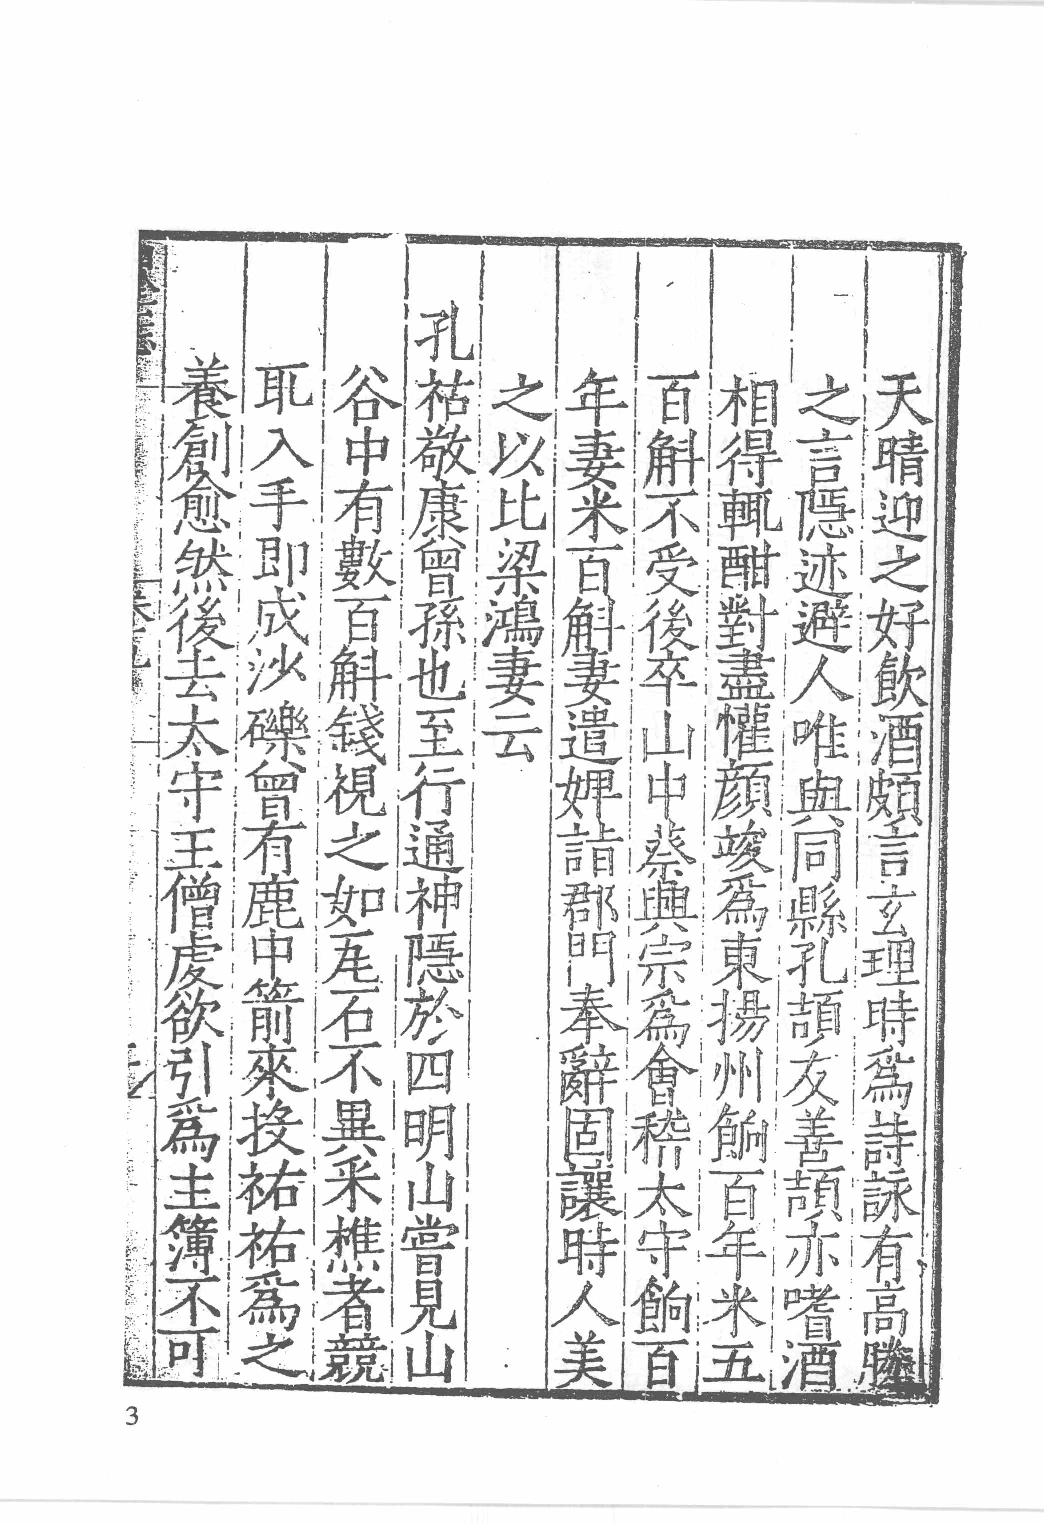 天晴迎之好飮酒頗言玄理時爲詩詠有高勝
之言隱迹避人唯與同縣孔顗友善顗亦嗜酒
相得輒酣對盡懽顏竣爲東揚州餉百年米五
百斛不受後卒山中蔡興宗爲會稽太守餉百
年妻米百斛妻遣婢詣郡門奉辭固讓時人美
之以比梁鴻妻云
孔祐敬康曾孫也至行通神隱於四明山嘗見山
谷中有數百斛錢視之如瓦石不異采樵者競
取入手即成沙礫曾有鹿中箭來投祐祐爲之
養創愈然後去太守王僧虔欲引爲主簿不可
3